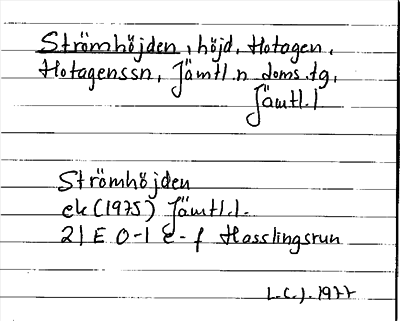 Strömhöjden, höjd, Hotagen,
Hotagenssn, Jämtl.n doms.tg,
Jämtl.l
Strömhöjden
ek (1975) Jämtl.l.
21 E 0-1 e-f Hosslingsrun
L.C.J. 1977